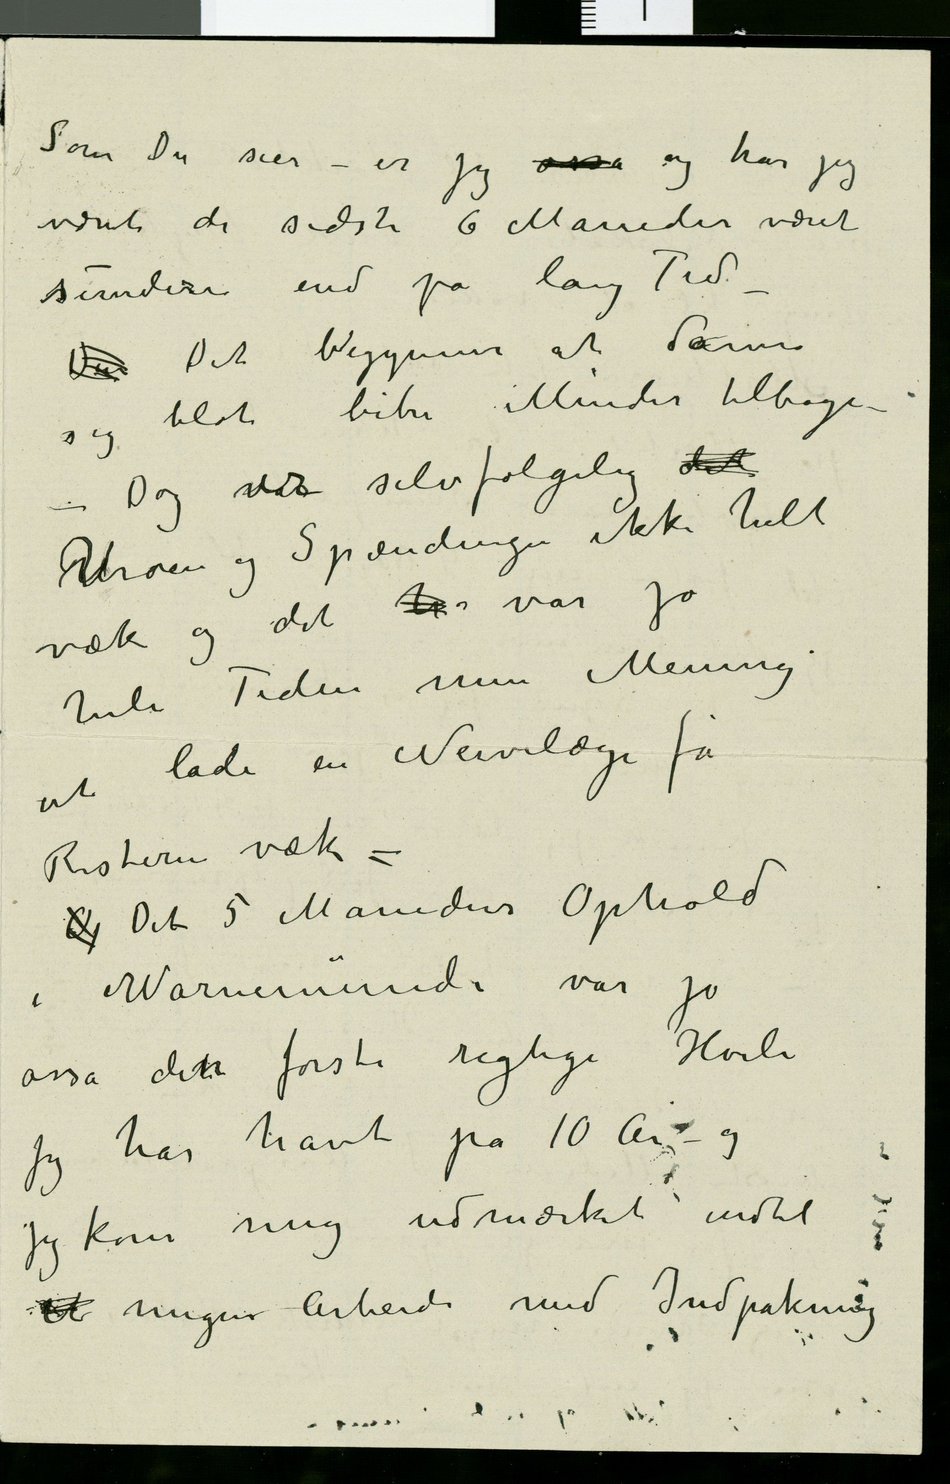 Som Du sier – er jeg ossa og har jeg
været de sidste 6 Maneder været
sundere end pa lang Tid –
Du Det begynner at danne
sig blot bitre Minder tilbage –
– Dog var selvfølgelig det
Uroen og Spændingen ikke helt
væk og det var jo
hele Tiden min Mening
at lade en Nervelæge få
Resterne væk –
Og Det 5 Maneders Ophold
i Warnemünde var jo
ossa den første rigtige Hvile
jeg har havt pa 10 Ar – og
jeg kom mig udmærket indtil
et meget Arbeide med Indpakning